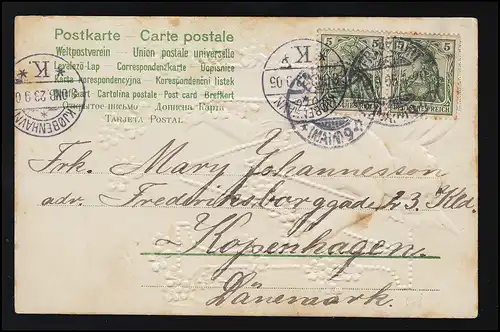 Postkarte - Carte postale
Weltpostverein - Union postale universelle
Levelező-Lap - Correspondenzkarte - Dopisnice
Karta korespondencyjna - Korespondenční lístek
Cartolina postale - Post card - Brefkort
Открытое письмо - Дописна Карта
TARJETA POSTAL
K
KJØBENHAVN
8.OMB 23 9 0
K
9 05
KJØBENHAVN
(MAIN)
5 5
REICH
Frk. Mary Johannesson
adr. Frederiksborggade 23. Kld.
Kopenhagen.
Dänemark.